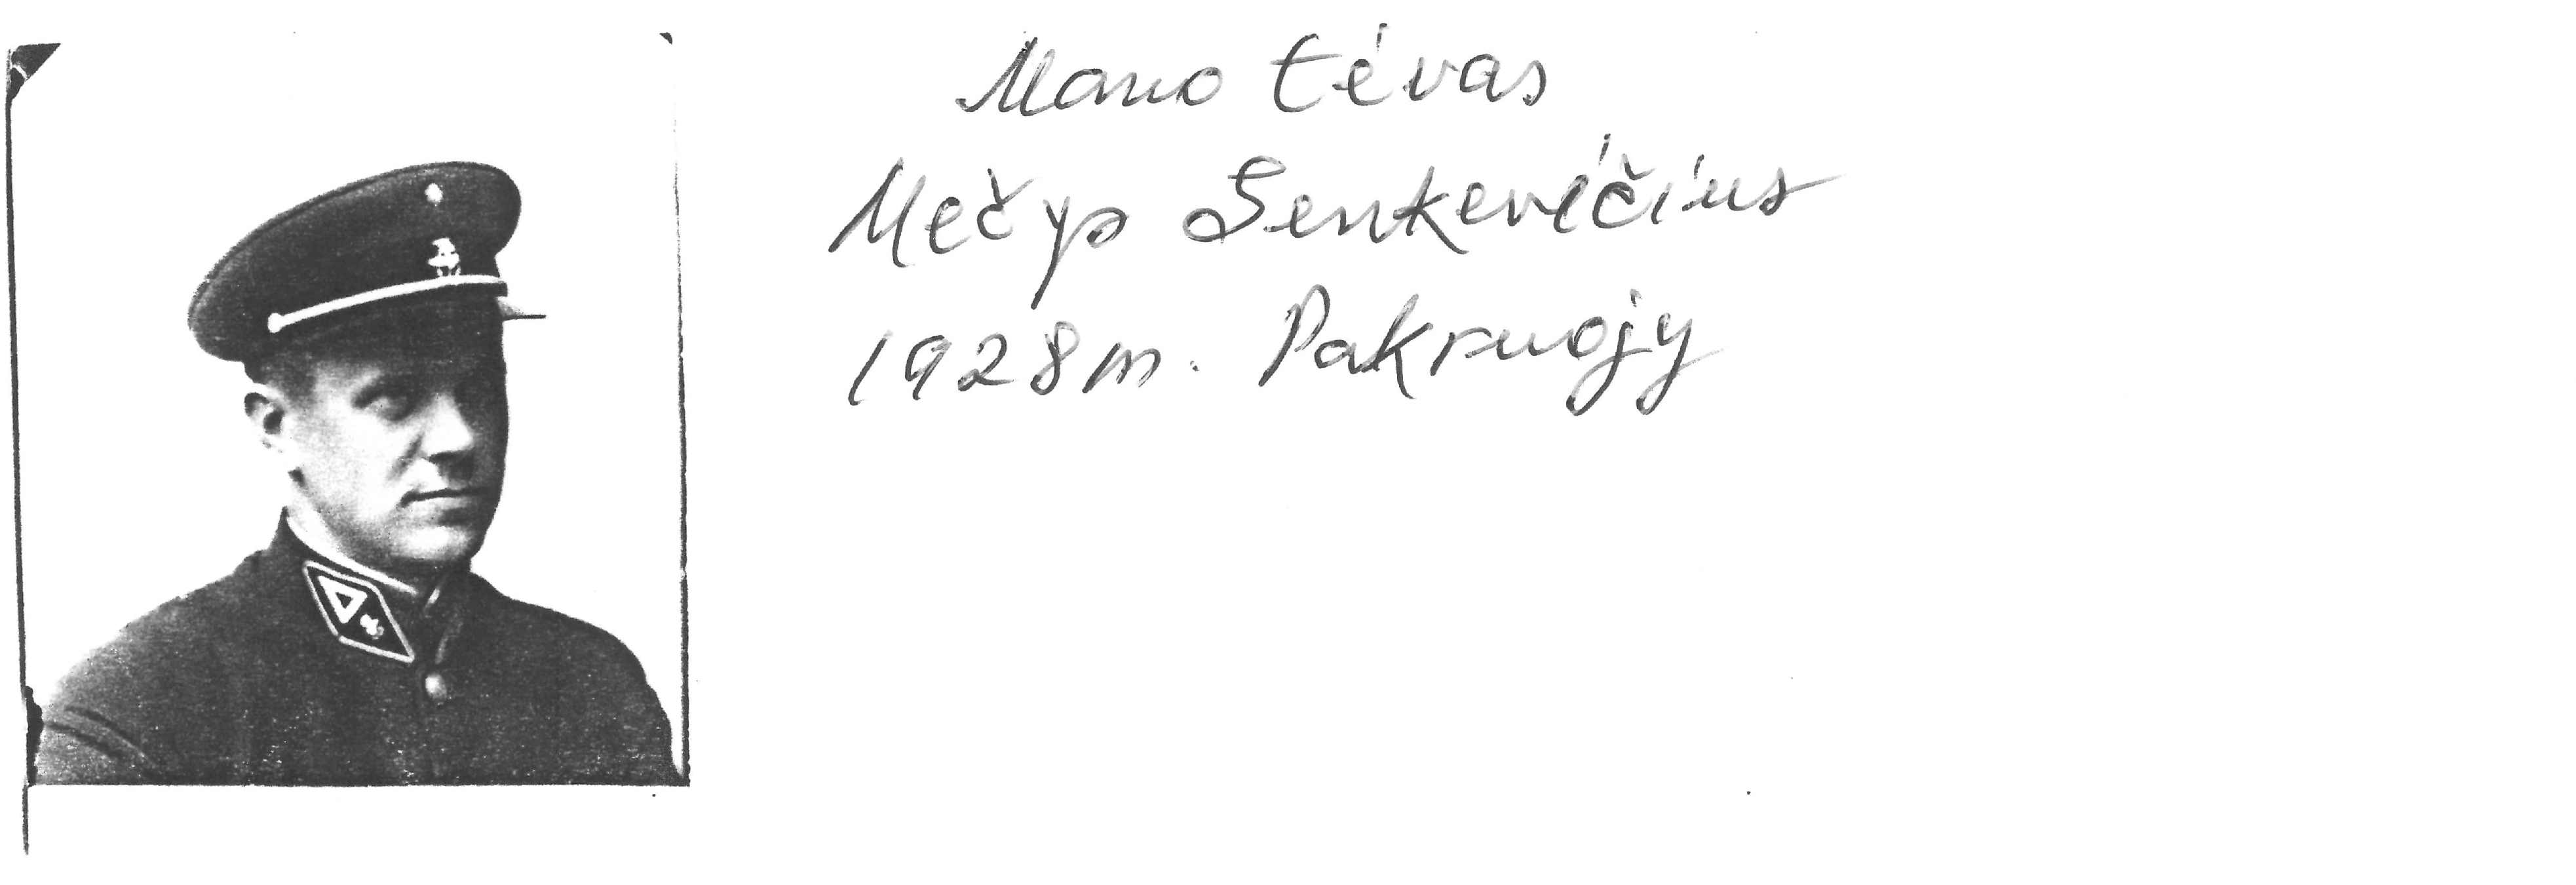 Mano tėvas
Mečys Senkevičius
1928 m. Pakruojy